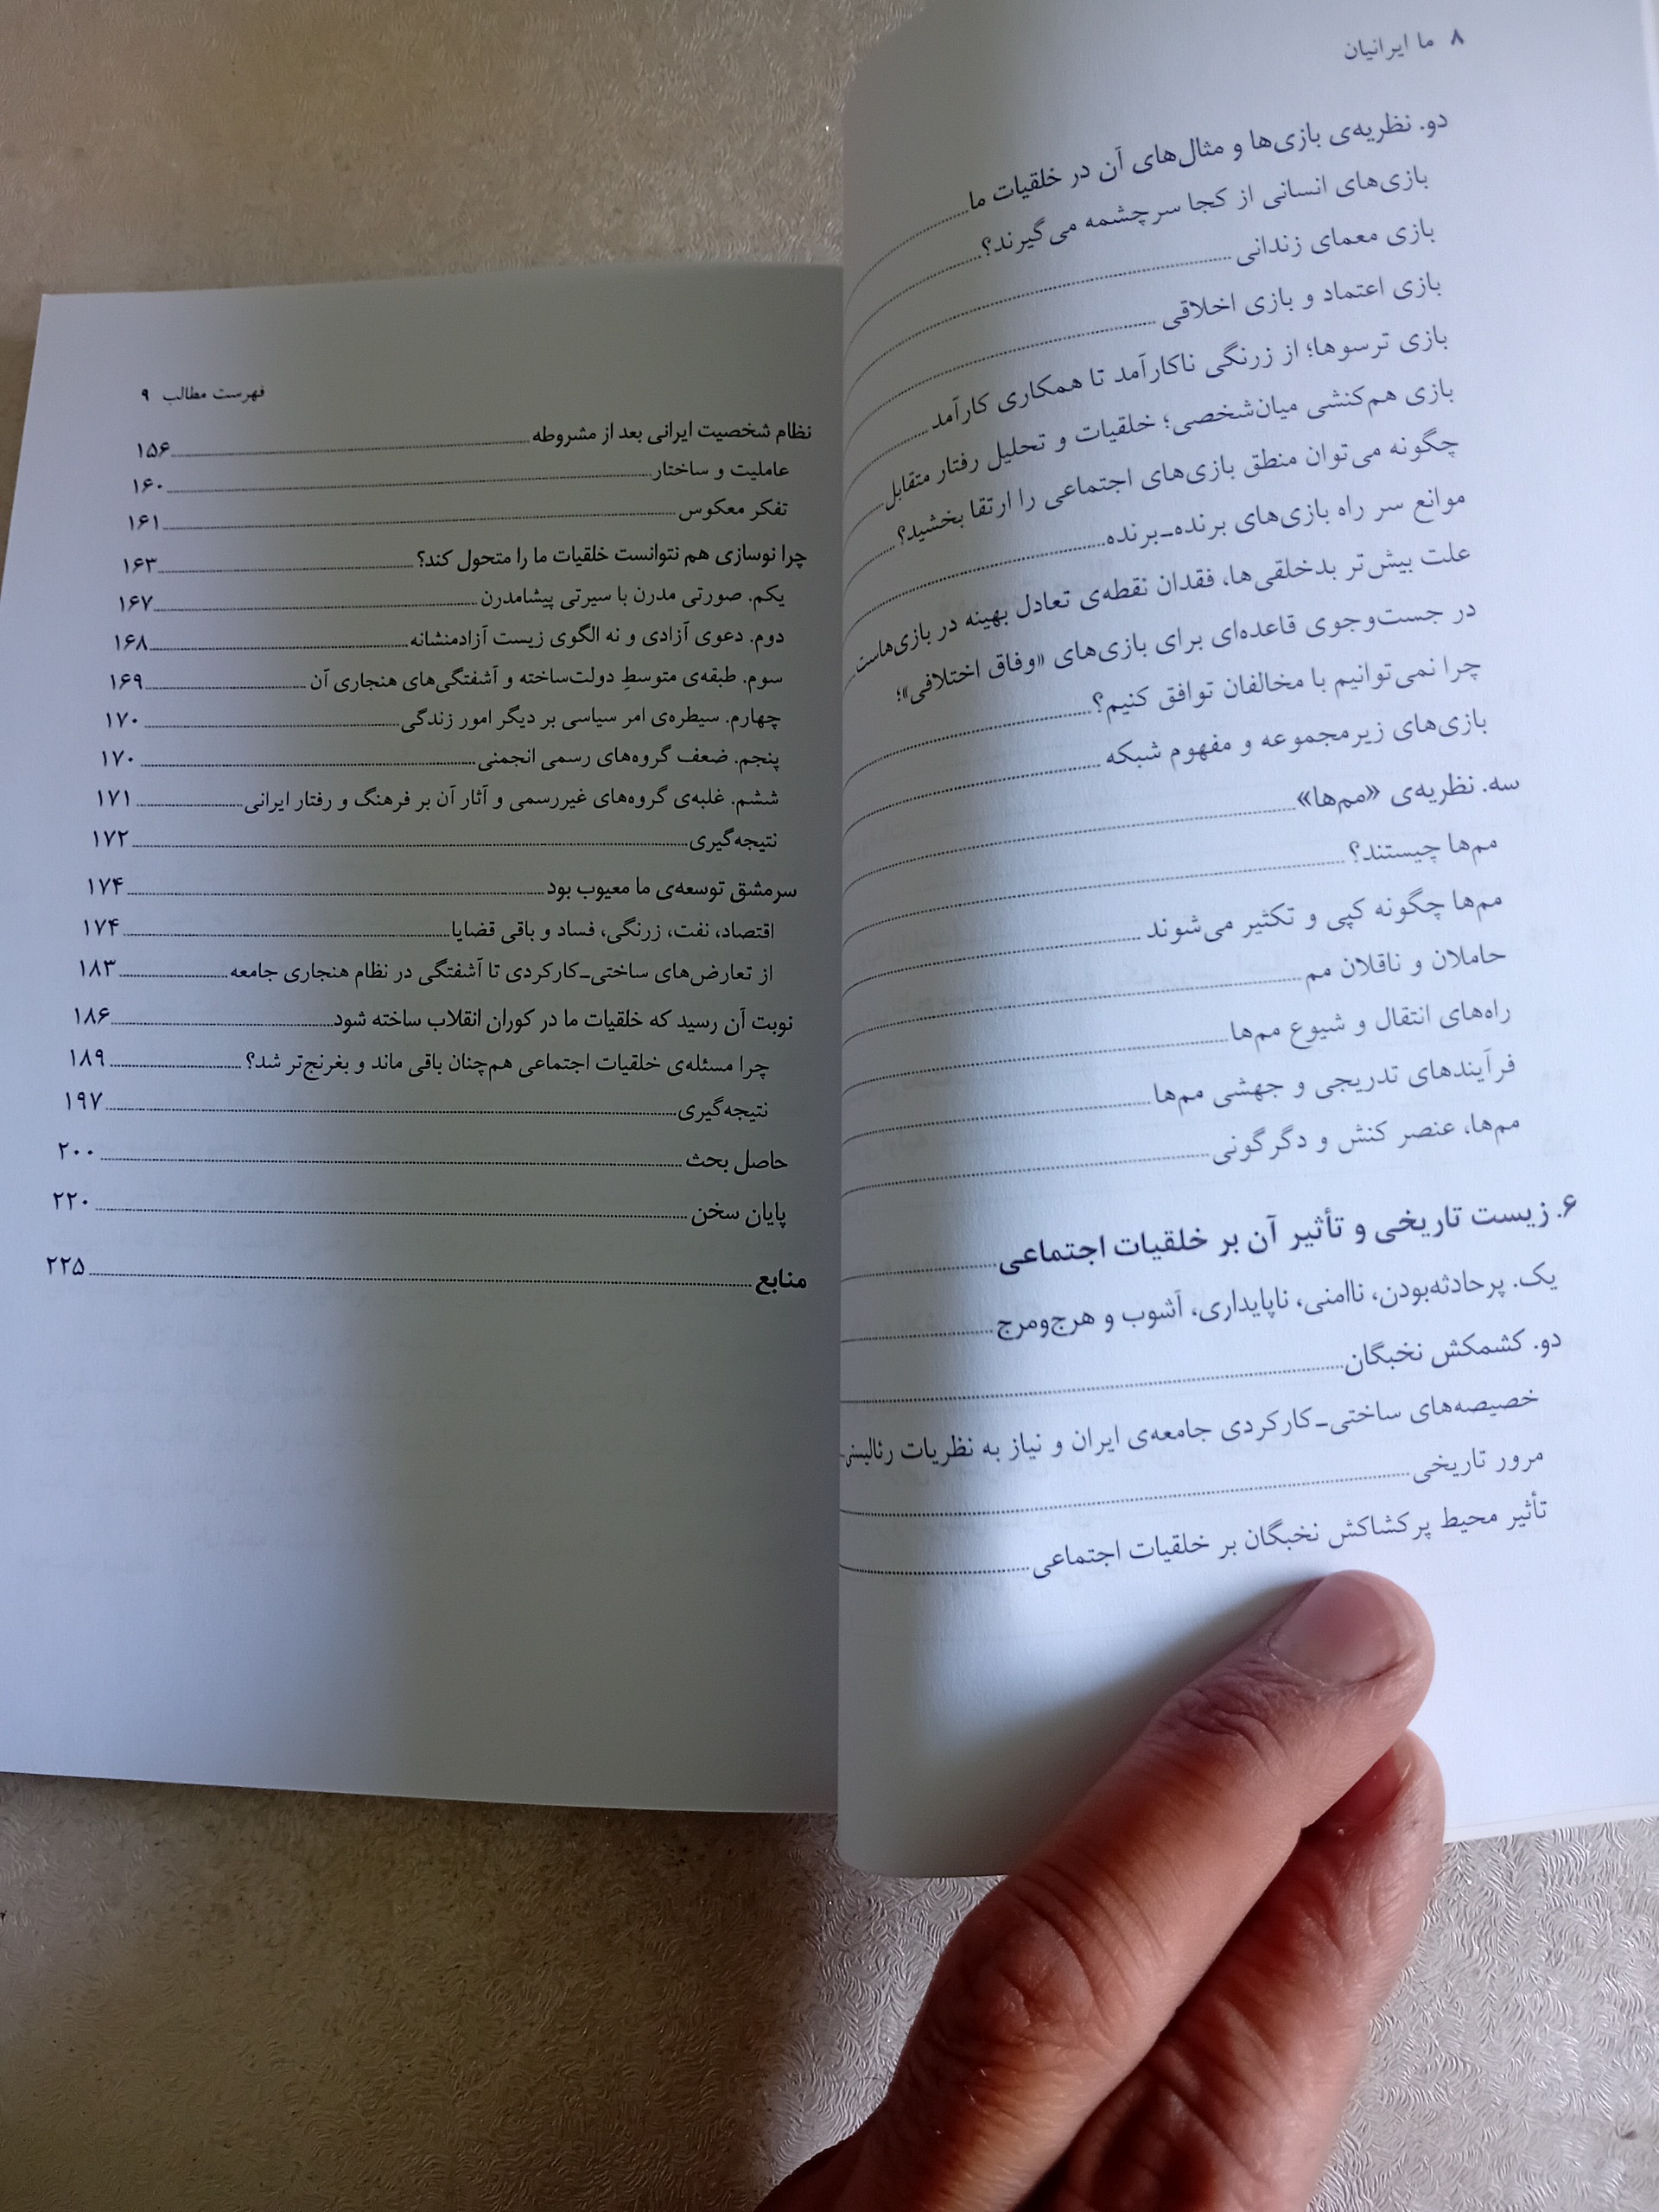 ۸ ما ایرانیان
دو. نظریه‌ی بازی‌ها و مثال‌های آن در خلقیات ما
بازی‌های انسانی از کجا سرچشمه می‌گیرند؟
بازی معمای زندانی
بازی اعتماد و بازی اخلاقی
بازی ترسوها؛ از زرنگی ناکارآمد تا همکاری کارآمد
بازی هم‌کنشی میان‌شخصی؛ خلقیات و تحلیل رفتار متقابل
چگونه می‌توان منطق بازی‌های اجتماعی را ارتقا بخشید؟
موانع سر راه بازی‌های برنده-برنده
علت بیش‌تر بدخلقی‌ها، فقدان نقطه‌ی تعادل بهینه در بازی‌هاست
در جست‌وجوی قاعده‌ای برای بازی‌های «وفاق اختلافی»؛
چرا نمی‌توانیم با مخالفان توافق کنیم؟
بازی‌های زیرمجموعه و مفهوم شبکه
سه. نظریه‌ی «مم‌ها»
مم‌ها چیستند؟
مم‌ها چگونه کپی و تکثیر می‌شوند
حاملان و ناقلان مم
راه‌های انتقال و شیوع مم‌ها
فرآیندهای تدریجی و جهشی مم‌ها
مم‌ها، عنصر کنش و دگرگونی
۶. زیست تاریخی و تأثیر آن بر خلقیات اجتماعی
یک. پرحادثه‌بودن، ناامنی، ناپایداری، آشوب و هرج‌ومرج
دو. کشمکش نخبگان
خصیصه‌های ساختی-کارکردی جامعه‌ی ایران و نیاز به نظریات رئالیستی
مرور تاریخی
تأثیر محیط پرکشاکش نخبگان بر خلقیات اجتماعی
فهرست مطالب ۹
نظام شخصیت ایرانی بعد از مشروطه ۱۵۶
عاملیت و ساختار ۱۶۰
تفکر معکوس ۱۶۱
چرا نوسازی هم نتوانست خلقیات ما را متحول کند؟ ۱۶۳
یکم. صورتی مدرن با سیرتی پیشامدرن ۱۶۷
دوم. دعوی آزادی و نه الگوی زیست آزادمنشانه ۱۶۸
سوم. طبقه‌ی متوسطِ دولت‌ساخته و آشفتگی‌های هنجاری آن ۱۶۹
چهارم. سیطره‌ی امر سیاسی بر دیگر امور زندگی ۱۷۰
پنجم. ضعف گروه‌های رسمی انجمنی ۱۷۰
ششم. غلبه‌ی گروه‌های غیررسمی و آثار آن بر فرهنگ و رفتار ایرانی ۱۷۱
نتیجه‌گیری ۱۷۲
سرمشق توسعه‌ی ما معیوب بود ۱۷۴
اقتصاد، نفت، زرنگی، فساد و باقی قضایا ۱۷۴
از تعارض‌های ساختی-کارکردی تا آشفتگی در نظام هنجاری جامعه ۱۸۳
نوبت آن رسید که خلقیات ما در کوران انقلاب ساخته شود ۱۸۶
چرا مسئله‌ی خلقیات اجتماعی هم‌چنان باقی ماند و بغرنج‌تر شد؟ ۱۸۹
نتیجه‌گیری ۱۹۷
حاصل بحث ۲۰۰
پایان سخن ۲۲۰
منابع ۲۲۵